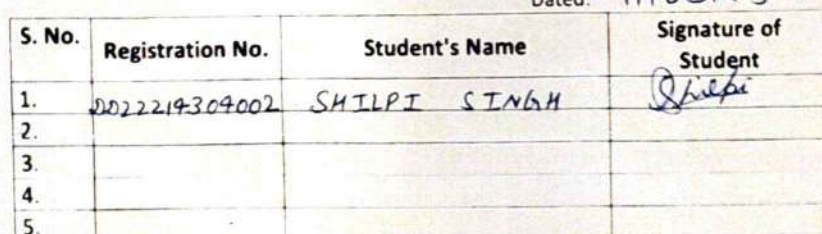 Dated:
S. No. Registration No. Student's Name Signature of Student
1. 2022214304002 SHILPI SINGH Shilpi
2.
3.
4.
5.